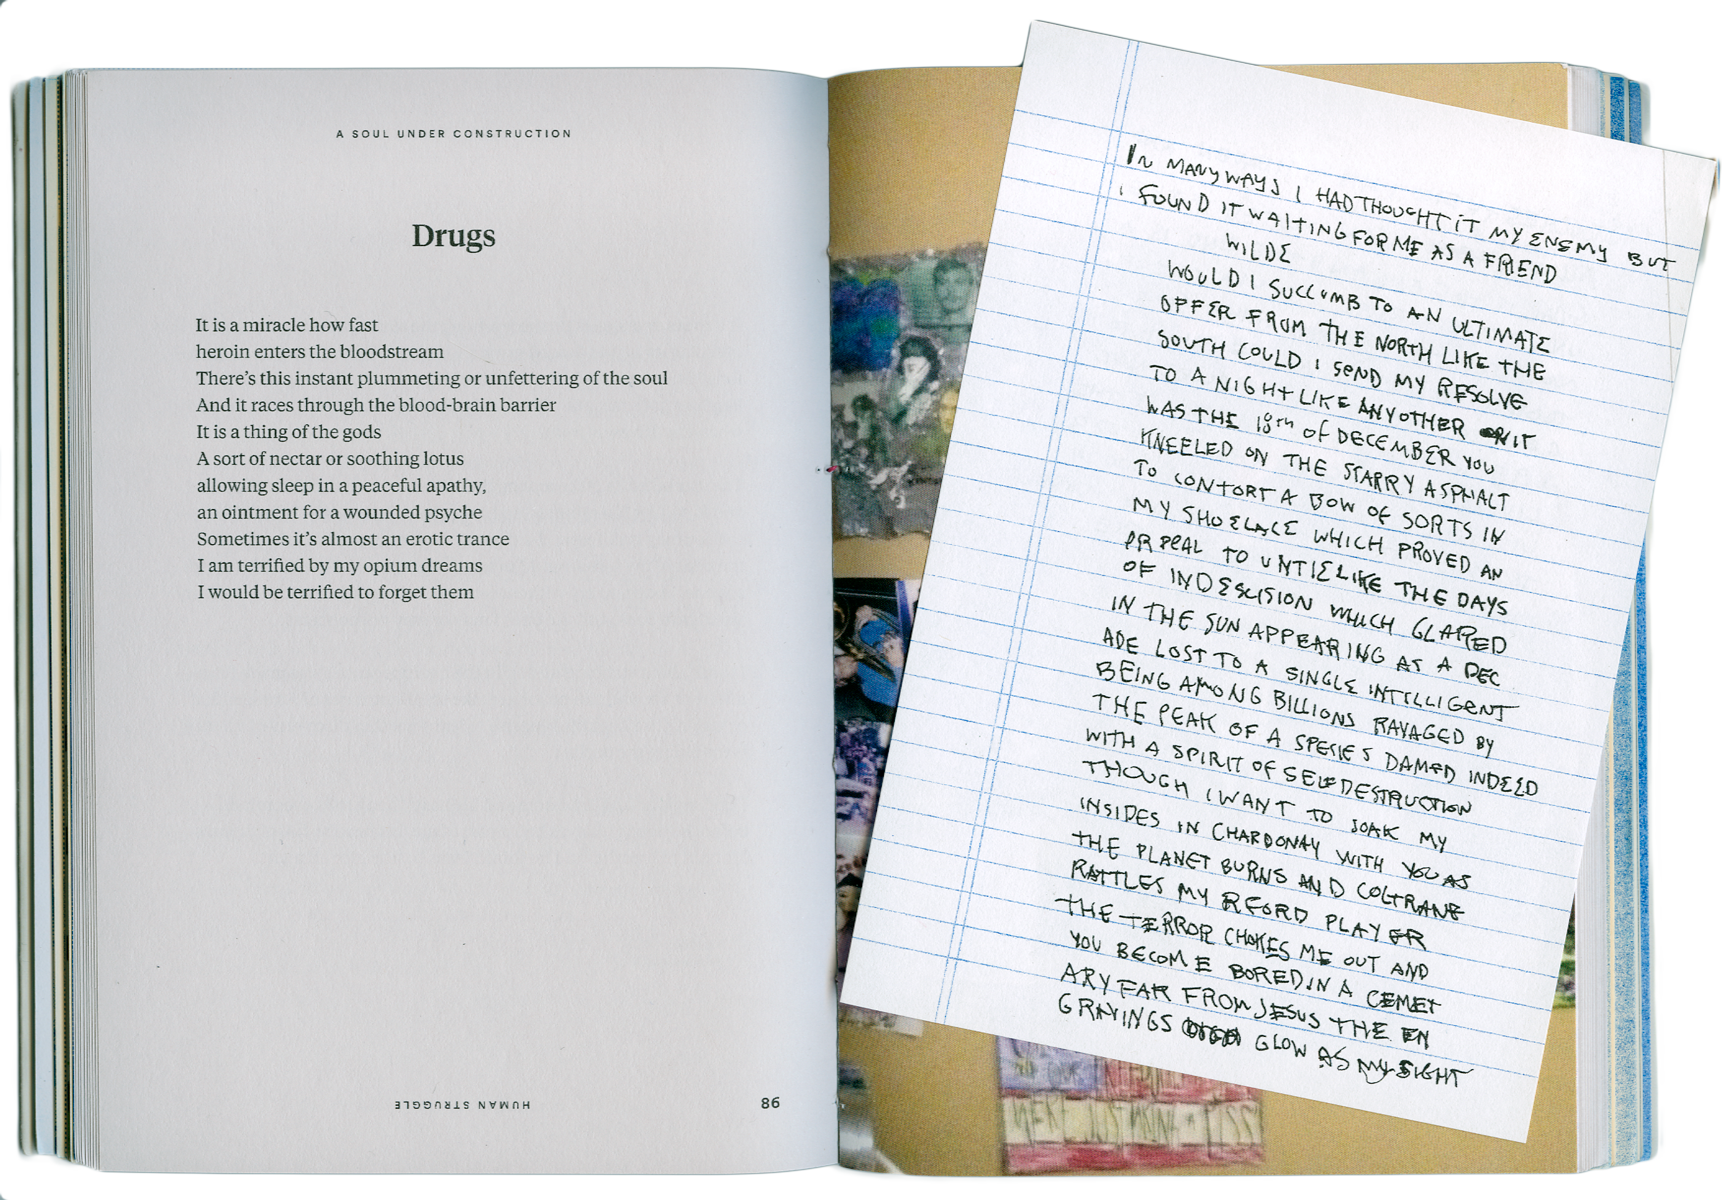 A SOUL UNDER CONSTRUCTION
Drugs
It is a miracle how fast
heroin enters the bloodstream
There's this instant plummeting or unfettering of the soul
And it races through the blood-brain barrier
It is a thing of the gods
A sort of nectar or soothing lotus
allowing sleep in a peaceful apathy,
an ointment for a wounded psyche
Sometimes it's almost an erotic trance
I am terrified by my opium dreams
I would be terrified to forget them
HUMAN STRUGGLE
86
IN MANY WAYS I HAD THOUGHT IT MY ENEMY BUT
I FOUND IT WAITING FOR ME AS A FRIEND
WILDE
WOULD I SUCCUMB TO AN ULTIMATE
OFFER FROM THE NORTH LIKE THE
SOUTH COULD I SEND MY RESOLVE
TO A NIGHT LIKE ANY OTHER IT
WAS THE 18TH OF DECEMBER YOU
KNEELED ON THE STARRY ASPHALT
TO CONTORT A BOW OF SORTS IN
MY SHOELACE WHICH PROVED AN
TO UNTIE LIKE THE DAYS
OF INDESCISION WHICH GLARED
IN THE SUN APPEARING AS A DEC
ADE LOST TO A SINGLE INTILLIGENT
BEING AMONG BILLIONS RAVAGED BY
THE PEAK OF A SPECIES DAMED INDEED
WITH A SPIRIT OF SELF DESTRUCTION
THOUGH I WANT TO SOAK MY
INSIDES IN CHARDONAY WITH YOU AS
THE PLANET BURNS AND COLTRANE
RATTLES MY RECORD PLAYER
THE TERROR CHOKES ME OUT AND
YOU BECOME BORED IN A CEMET
ARY FAR FROM JESUS THE EN
GRAVINGS GLOW AS MY SIGHT